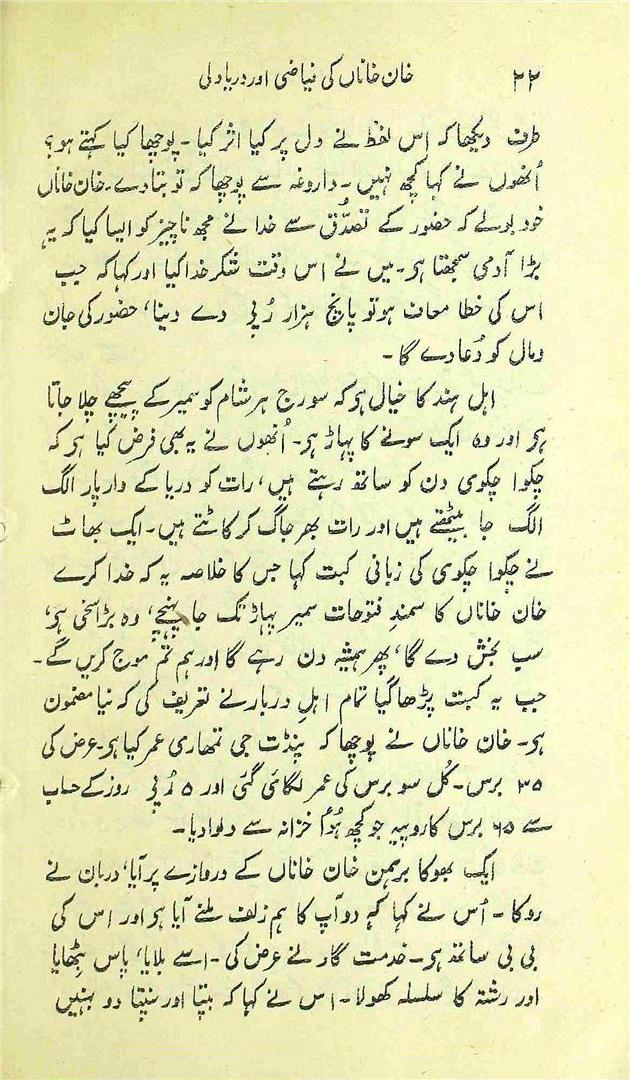 ۲۲ خان خاناں کی فیاضی اور دریا دلی
طرف دیکھا کہ اِس لفظ نے دل پر کیا اثر کیا۔ پوچھا کیا کہتے ہو؟
اُنھوں نے کہا کچھ نہیں۔ داروغہ سے پوچھا کہ تو بتا دے۔ خان خاناں
خود بولے کہ حضور کے تصدُّق سے خدا نے مجھ ناچیز کو ایسا کیا کہ یہ
بڑا آدمی سمجھتا ہی۔ میں نے اس وقت شکر خدا کیا اور کہا کہ جب
اس کی خطا معاف ہو تو پانچ ہزار رُپی دے دینا، حضور کی جان
و مال کو دُعا دے گا۔
اہل ہند کا خیال ہی کہ سورج ہر شام کو سمیر کے پیچھے چلا جاتا
ہی اور وہ ایک سونے کا پہاڑ ہی۔ اُنھوں نے یہ بھی فرض کیا ہی کہ
چکوا چکوی دن کو ساتھ رہتے ہیں، رات کو دریا کے وار پار الگ
الگ جا بیٹھتے ہیں اور رات بھر جاگ کر کاٹتے ہیں۔ ایک بھاٹ
نے چکوا چکوی کی زبانی کبت کہا جس کا خلاصہ یہ کہ خدا کرے
خان خاناں کا سمندِ فتوحات سمیر پہاڑ تک جا پہنچے، وہ بڑا سخی ہی،
سب بخش دے گا، پھر ہمیشہ دن رہے گا اور ہم تم موج کریں گے۔
جب یہ کبت پڑھا گیا تمام اہلِ دربار نے تعریف کی کہ نیا مضمون
ہی۔ خان خاناں نے پوچھا کہ پنڈت جی تمھاری عمر کیا ہی۔ عرض کی
۳۵ برس۔ کُل سو برس کی عمر لگائی گئی اور ۵ رُپی روز کے حساب
سے ۶۵ برس کا روپیہ جو کچھ ہُوا خزانہ سے دلوا دیا۔
ایک بھوکا برہمن خان خاناں کے دروازے پر آیا، دربان نے
روکا۔ اُس نے کہا کہہ دو آپ کا ہم زلف ملنے آیا ہی اور اس کی
بی بی ساتھ ہی۔ خدمت گار نے عرض کی۔ اسے بلایا، پاس بِٹھایا
اور رشتہ کا سلسلہ کھولا۔ اس نے کہا کہ بپتا اور سنپتا دو بہنیں